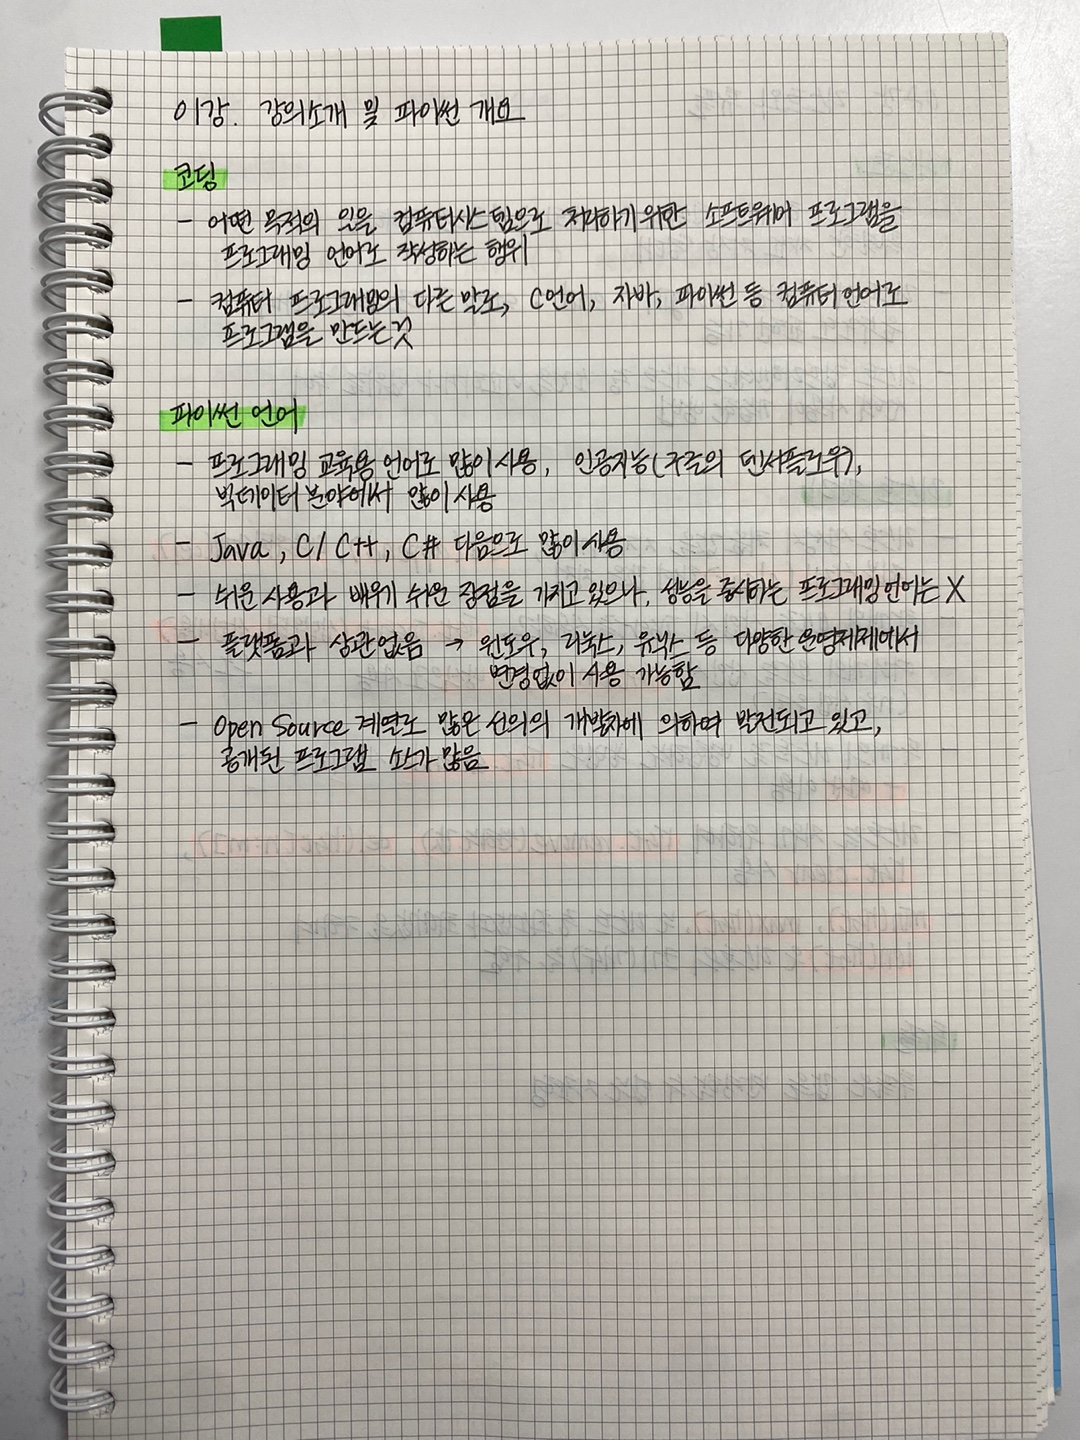 01강. 강의소개 및 파이썬 개요
코딩
- 어떤 목적의 일을 컴퓨터시스템으로 처리하기위한 소프트웨어 프로그램을
프로그래밍 언어로 작성하는 행위
- 컴퓨터 프로그래밍의 다른 말로, C언어, 자바, 파이썬 등 컴퓨터언어로
프로그램을 만드는 것
파이썬 언어
- 프로그래밍 교육용 언어로 많이 사용, 인공지능(구글의 텐서플로우),
빅데이터 분야에서 많이 사용
- Java, C/C++, C# 다음으로 많이 사용
- 쉬운 사용과 배우기 쉬운 장점을 가지고 있으나, 성능을 중시하는 프로그래밍언어는 X
- 플랫폼과 상관없음 → 윈도우, 리눅스, 유닉스 등 다양한 운영체제에서
변경없이 사용 가능함
- Open Source 계열로 많은 선의의 개발자에 의하여 발전되고 있고,
공개된 프로그램 소스가 많음